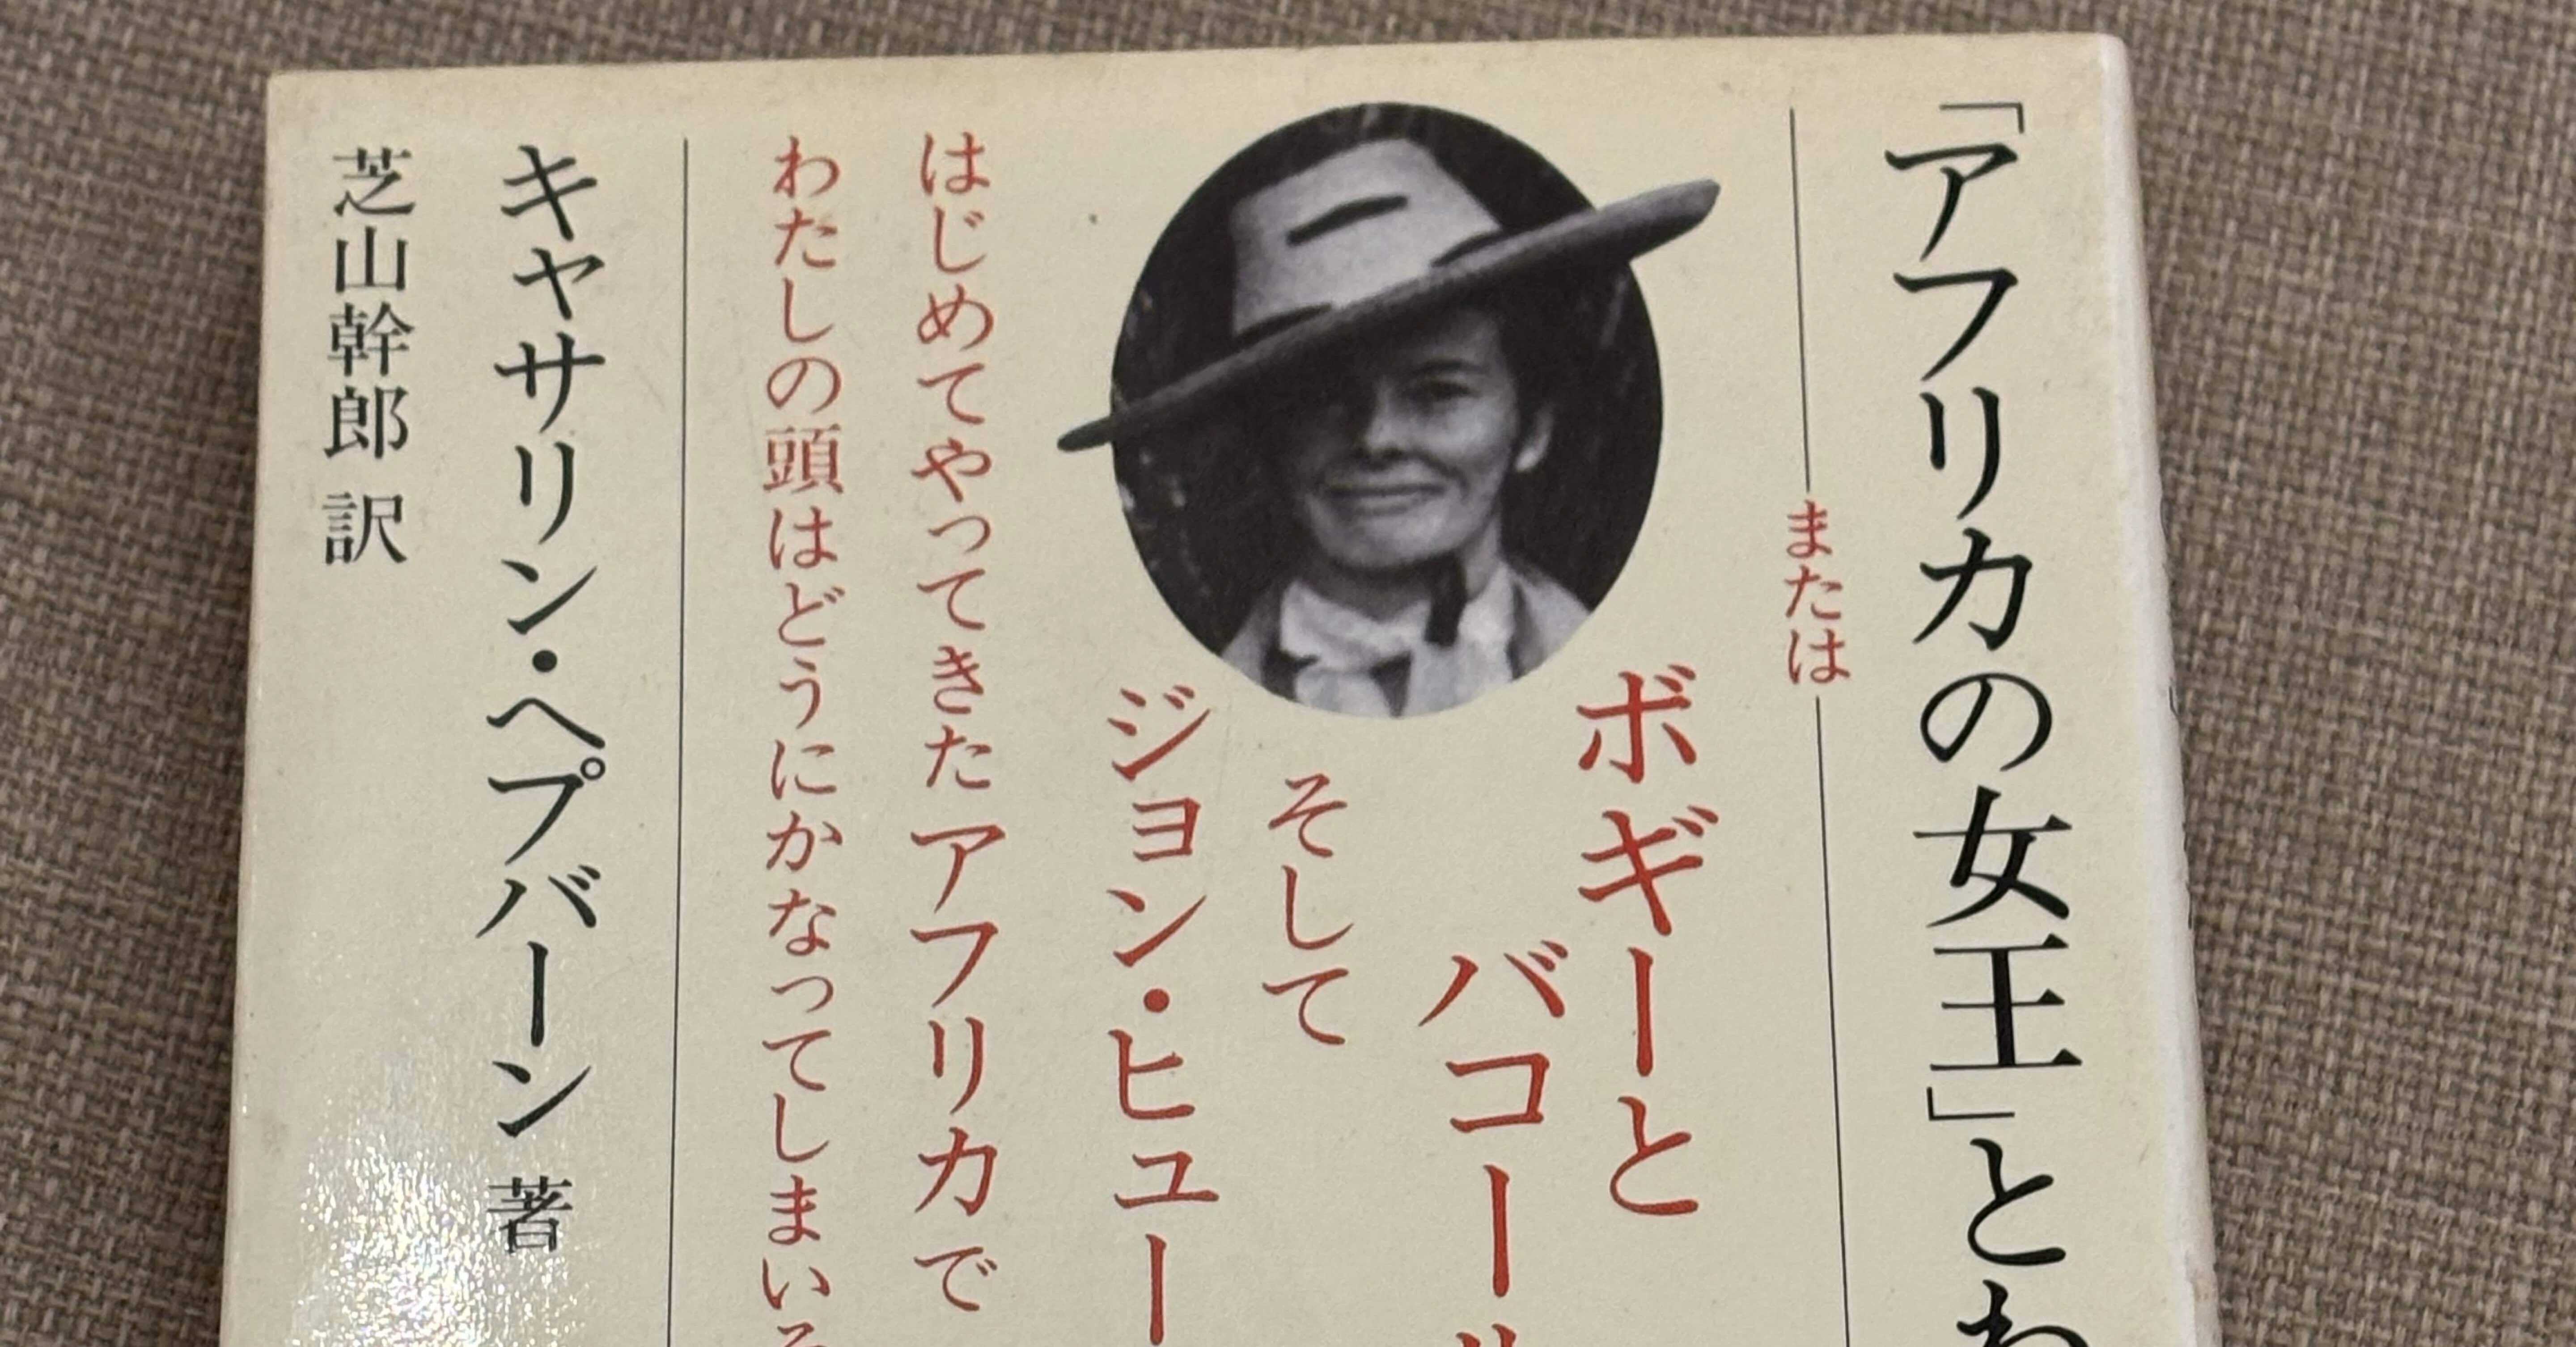 「アフリカの女王」とわ
または
ボギーと
バコール
そして
ジョン・ヒュー
はじめてやってきたアフリカで
わたしの頭はどうにかなってしまいそ
キャサリン・ヘプバーン 著
芝山幹郎 訳